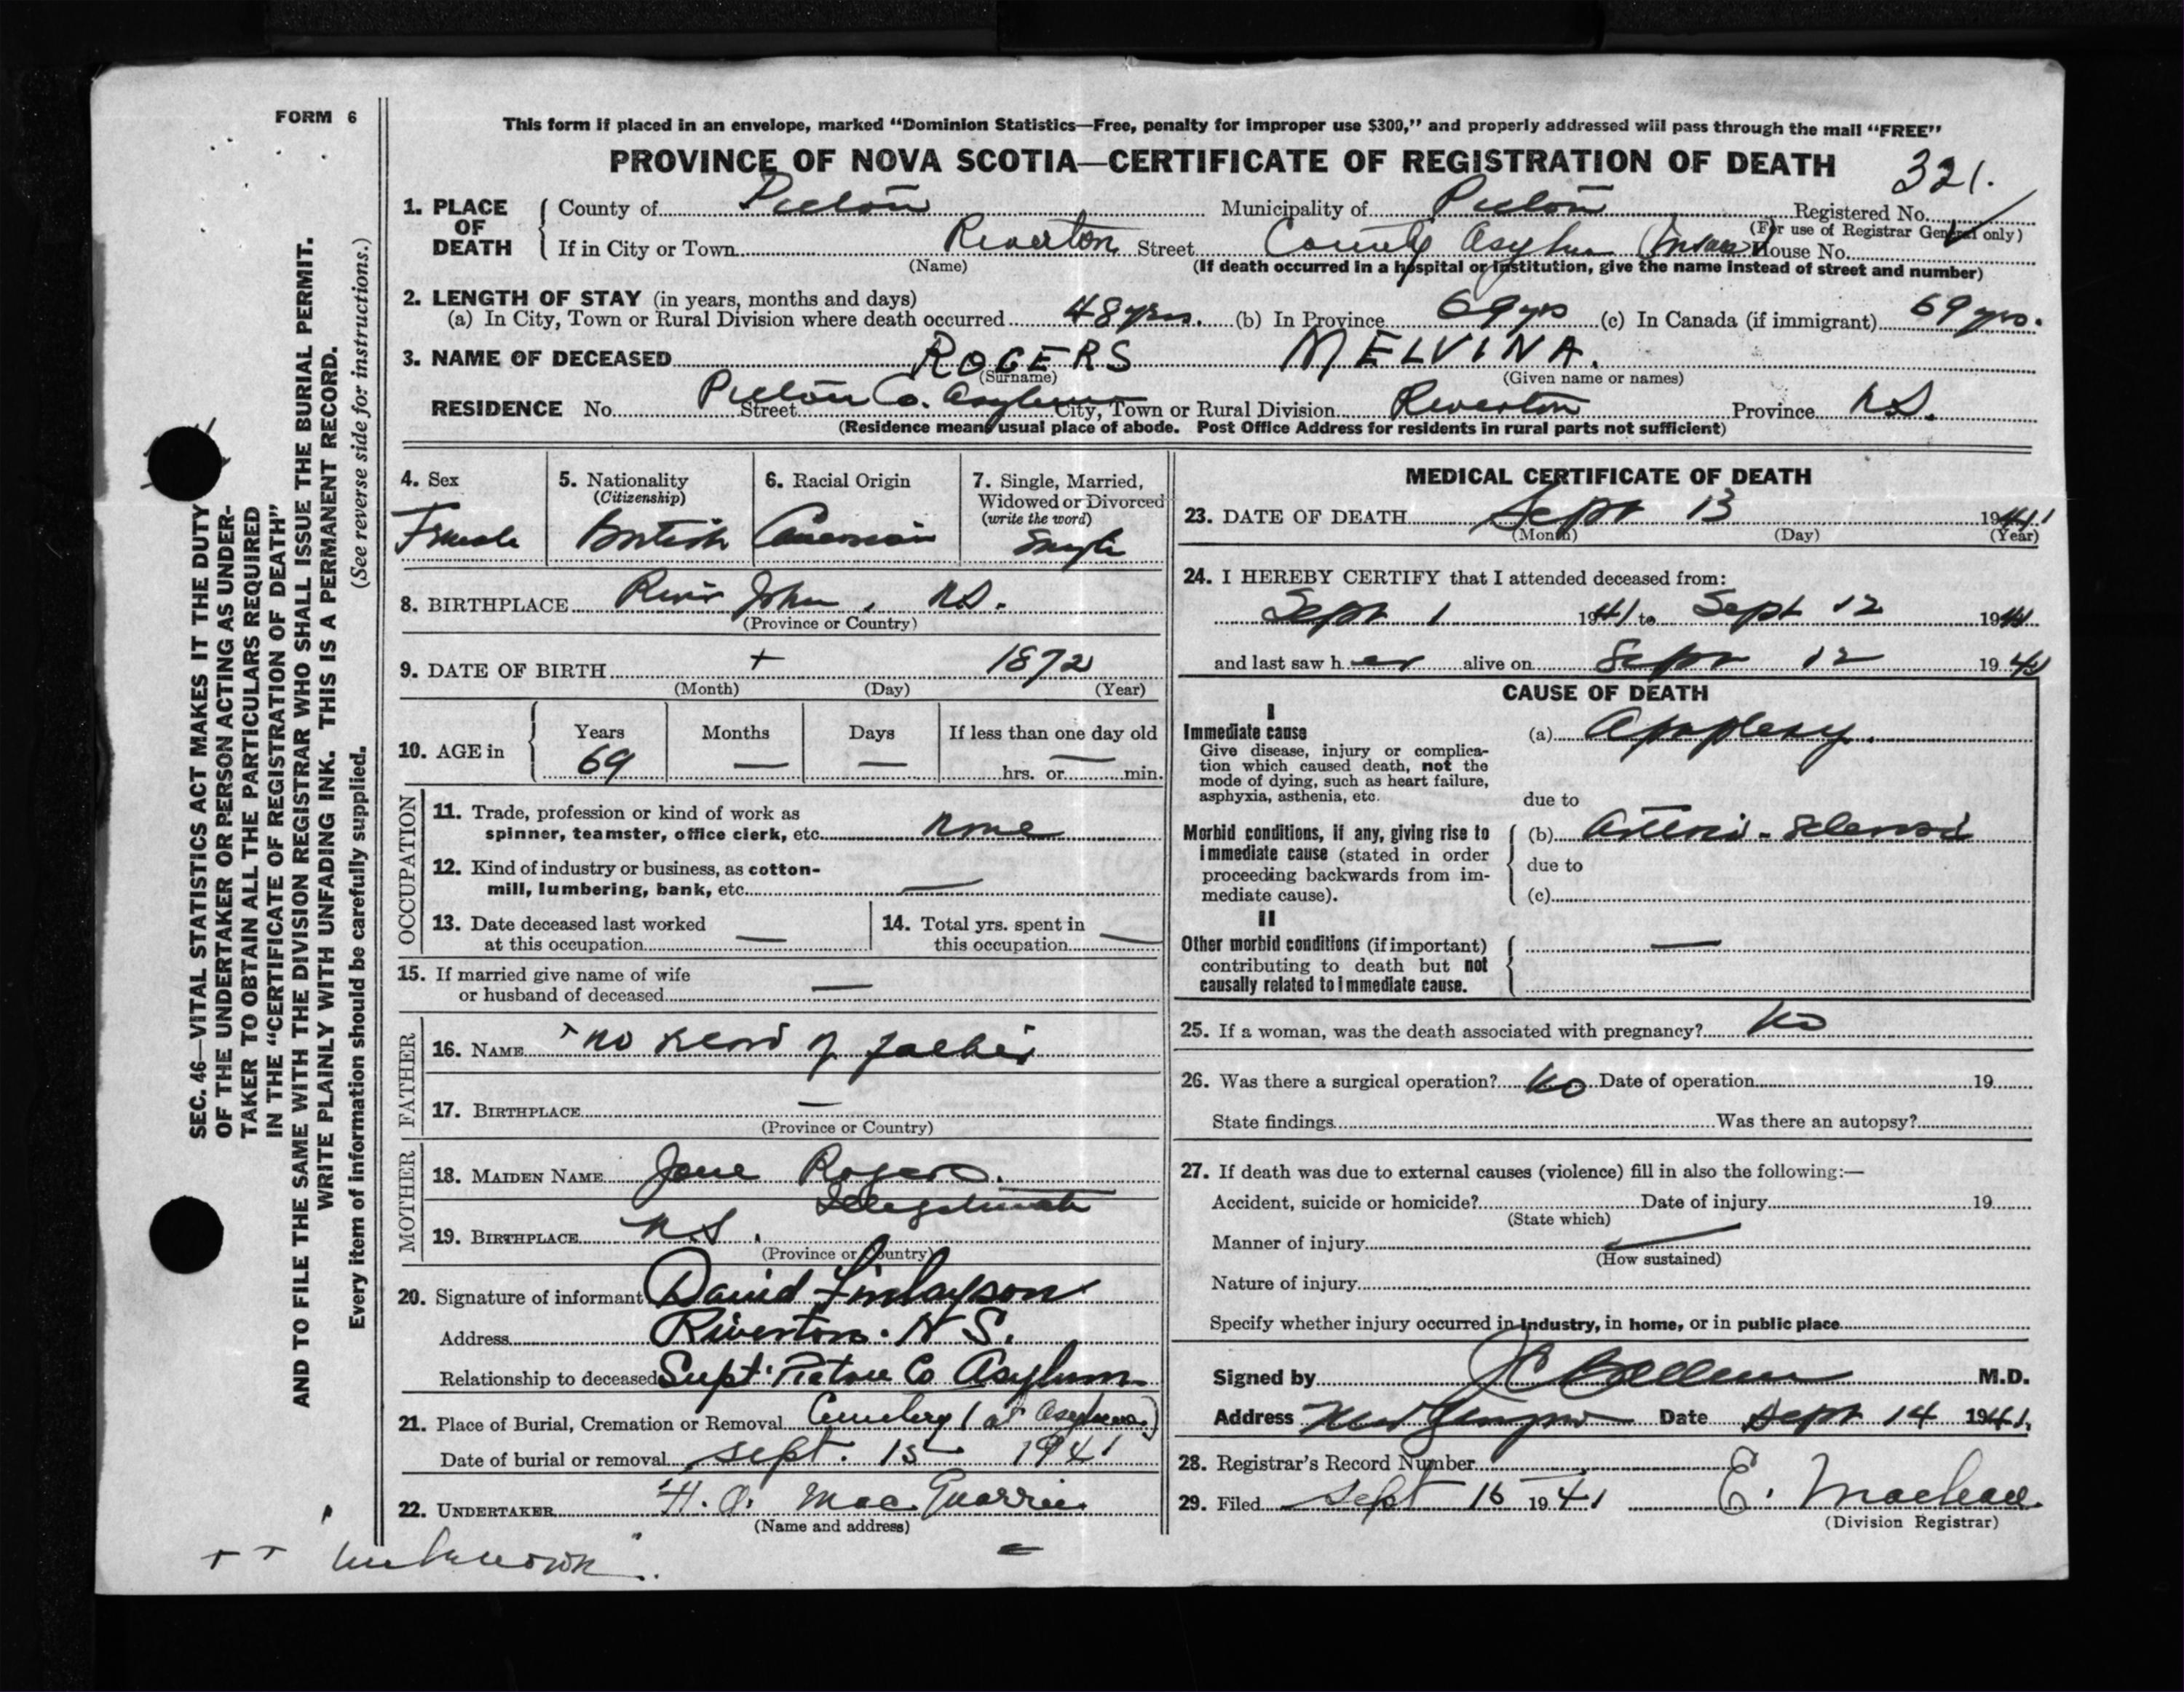 FORM 6
This form if placed in an envelope, marked “Dominion Statistics—Free, penalty for improper use $300,” and properly addressed will pass through the mail “FREE”
PROVINCE OF NOVA SCOTIA—CERTIFICATE OF REGISTRATION OF DEATH
321.
1. PLACE OF DEATH
County of Pictou Municipality of Pictou Registered No.
(For use of Registrar General only)
If in City or Town Riverton Street County Asylum (Insane) House No.
(Name) (If death occurred in a hospital or institution, give the name instead of street and number)
2. LENGTH OF STAY (in years, months and days)
(a) In City, Town or Rural Division where death occurred 48 yrs. (b) In Province 69 yrs (c) In Canada (if immigrant) 69 yrs.
3. NAME OF DECEASED ROGERS MELVINA.
(Surname) (Given name or names)
RESIDENCE No. Pictou Co. Asylum Street City, Town or Rural Division Riverton Province N.S.
(Residence means usual place of abode. Post Office Address for residents in rural parts not sufficient)
4. Sex
Female
5. Nationality
(Citizenship)
British
6. Racial Origin
7. Single, Married,
Widowed or Divorced
(write the word)
Single
8. BIRTHPLACE River John, N.S.
(Province or Country)
9. DATE OF BIRTH + 1872
(Month) (Day) (Year)
10. AGE in
Years Months Days If less than one day old
69 — — —
hrs. or min.
OCCUPATION
11. Trade, profession or kind of work as
spinner, teamster, office clerk, etc. none
12. Kind of industry or business, as cotton-
mill, lumbering, bank, etc. —
13. Date deceased last worked
at this occupation —
14. Total yrs. spent in
this occupation —
15. If married give name of wife
or husband of deceased —
FATHER
16. NAME + no record of father
17. BIRTHPLACE —
(Province or Country)
MOTHER
18. MAIDEN NAME Jane Rogers.
Illegitimate
19. BIRTHPLACE N.S.
(Province or Country)
20. Signature of informant David Finlayson
Address Riverton. N S.
Relationship to deceased Supt Pictou Co Asylum
21. Place of Burial, Cremation or Removal Cemetery (at Asylum)
Date of burial or removal Sept. 15 1941
22. UNDERTAKER H. O. MacQuarrie
(Name and address)
+ + unknown.
MEDICAL CERTIFICATE OF DEATH
23. DATE OF DEATH Sept 13 1941
(Month) (Day) (Year)
24. I HEREBY CERTIFY that I attended deceased from:
Sept 1 1941 to Sept 12 1941
and last saw her alive on Sept 12 1941
CAUSE OF DEATH
I
Immediate cause
Give disease, injury or complica-
tion which caused death, not the
mode of dying, such as heart failure,
asphyxia, asthenia, etc.
(a) Apoplexy.
due to
Morbid conditions, if any, giving rise to
immediate cause (stated in order
proceeding backwards from im-
mediate cause).
(b) Arterio-Sclerosis
due to
(c)
II
Other morbid conditions (if important)
contributing to death but not
causally related to immediate cause.
—
25. If a woman, was the death associated with pregnancy? No
26. Was there a surgical operation? No Date of operation 19
State findings Was there an autopsy?
27. If death was due to external causes (violence) fill in also the following:—
Accident, suicide or homicide? Date of injury 19
(State which)
Manner of injury
(How sustained)
Nature of injury
Specify whether injury occurred in Industry, in home, or in public place
Signed by M.D.
Address New Glasgow Date Sept 14 1941.
28. Registrar's Record Number
29. Filed Sept 16 1941 E. MacLeod
(Division Registrar)
SEC. 46—VITAL STATISTICS ACT MAKES IT THE DUTY
OF THE UNDERTAKER OR PERSON ACTING AS UNDER-
TAKER TO OBTAIN ALL THE PARTICULARS REQUIRED
IN THE “CERTIFICATE OF REGISTRATION OF DEATH”
AND TO FILE THE SAME WITH THE DIVISION REGISTRAR WHO SHALL ISSUE THE BURIAL PERMIT.
WRITE PLAINLY WITH UNFADING INK. THIS IS A PERMANENT RECORD.
Every item of information should be carefully supplied. (See reverse side for instructions.)